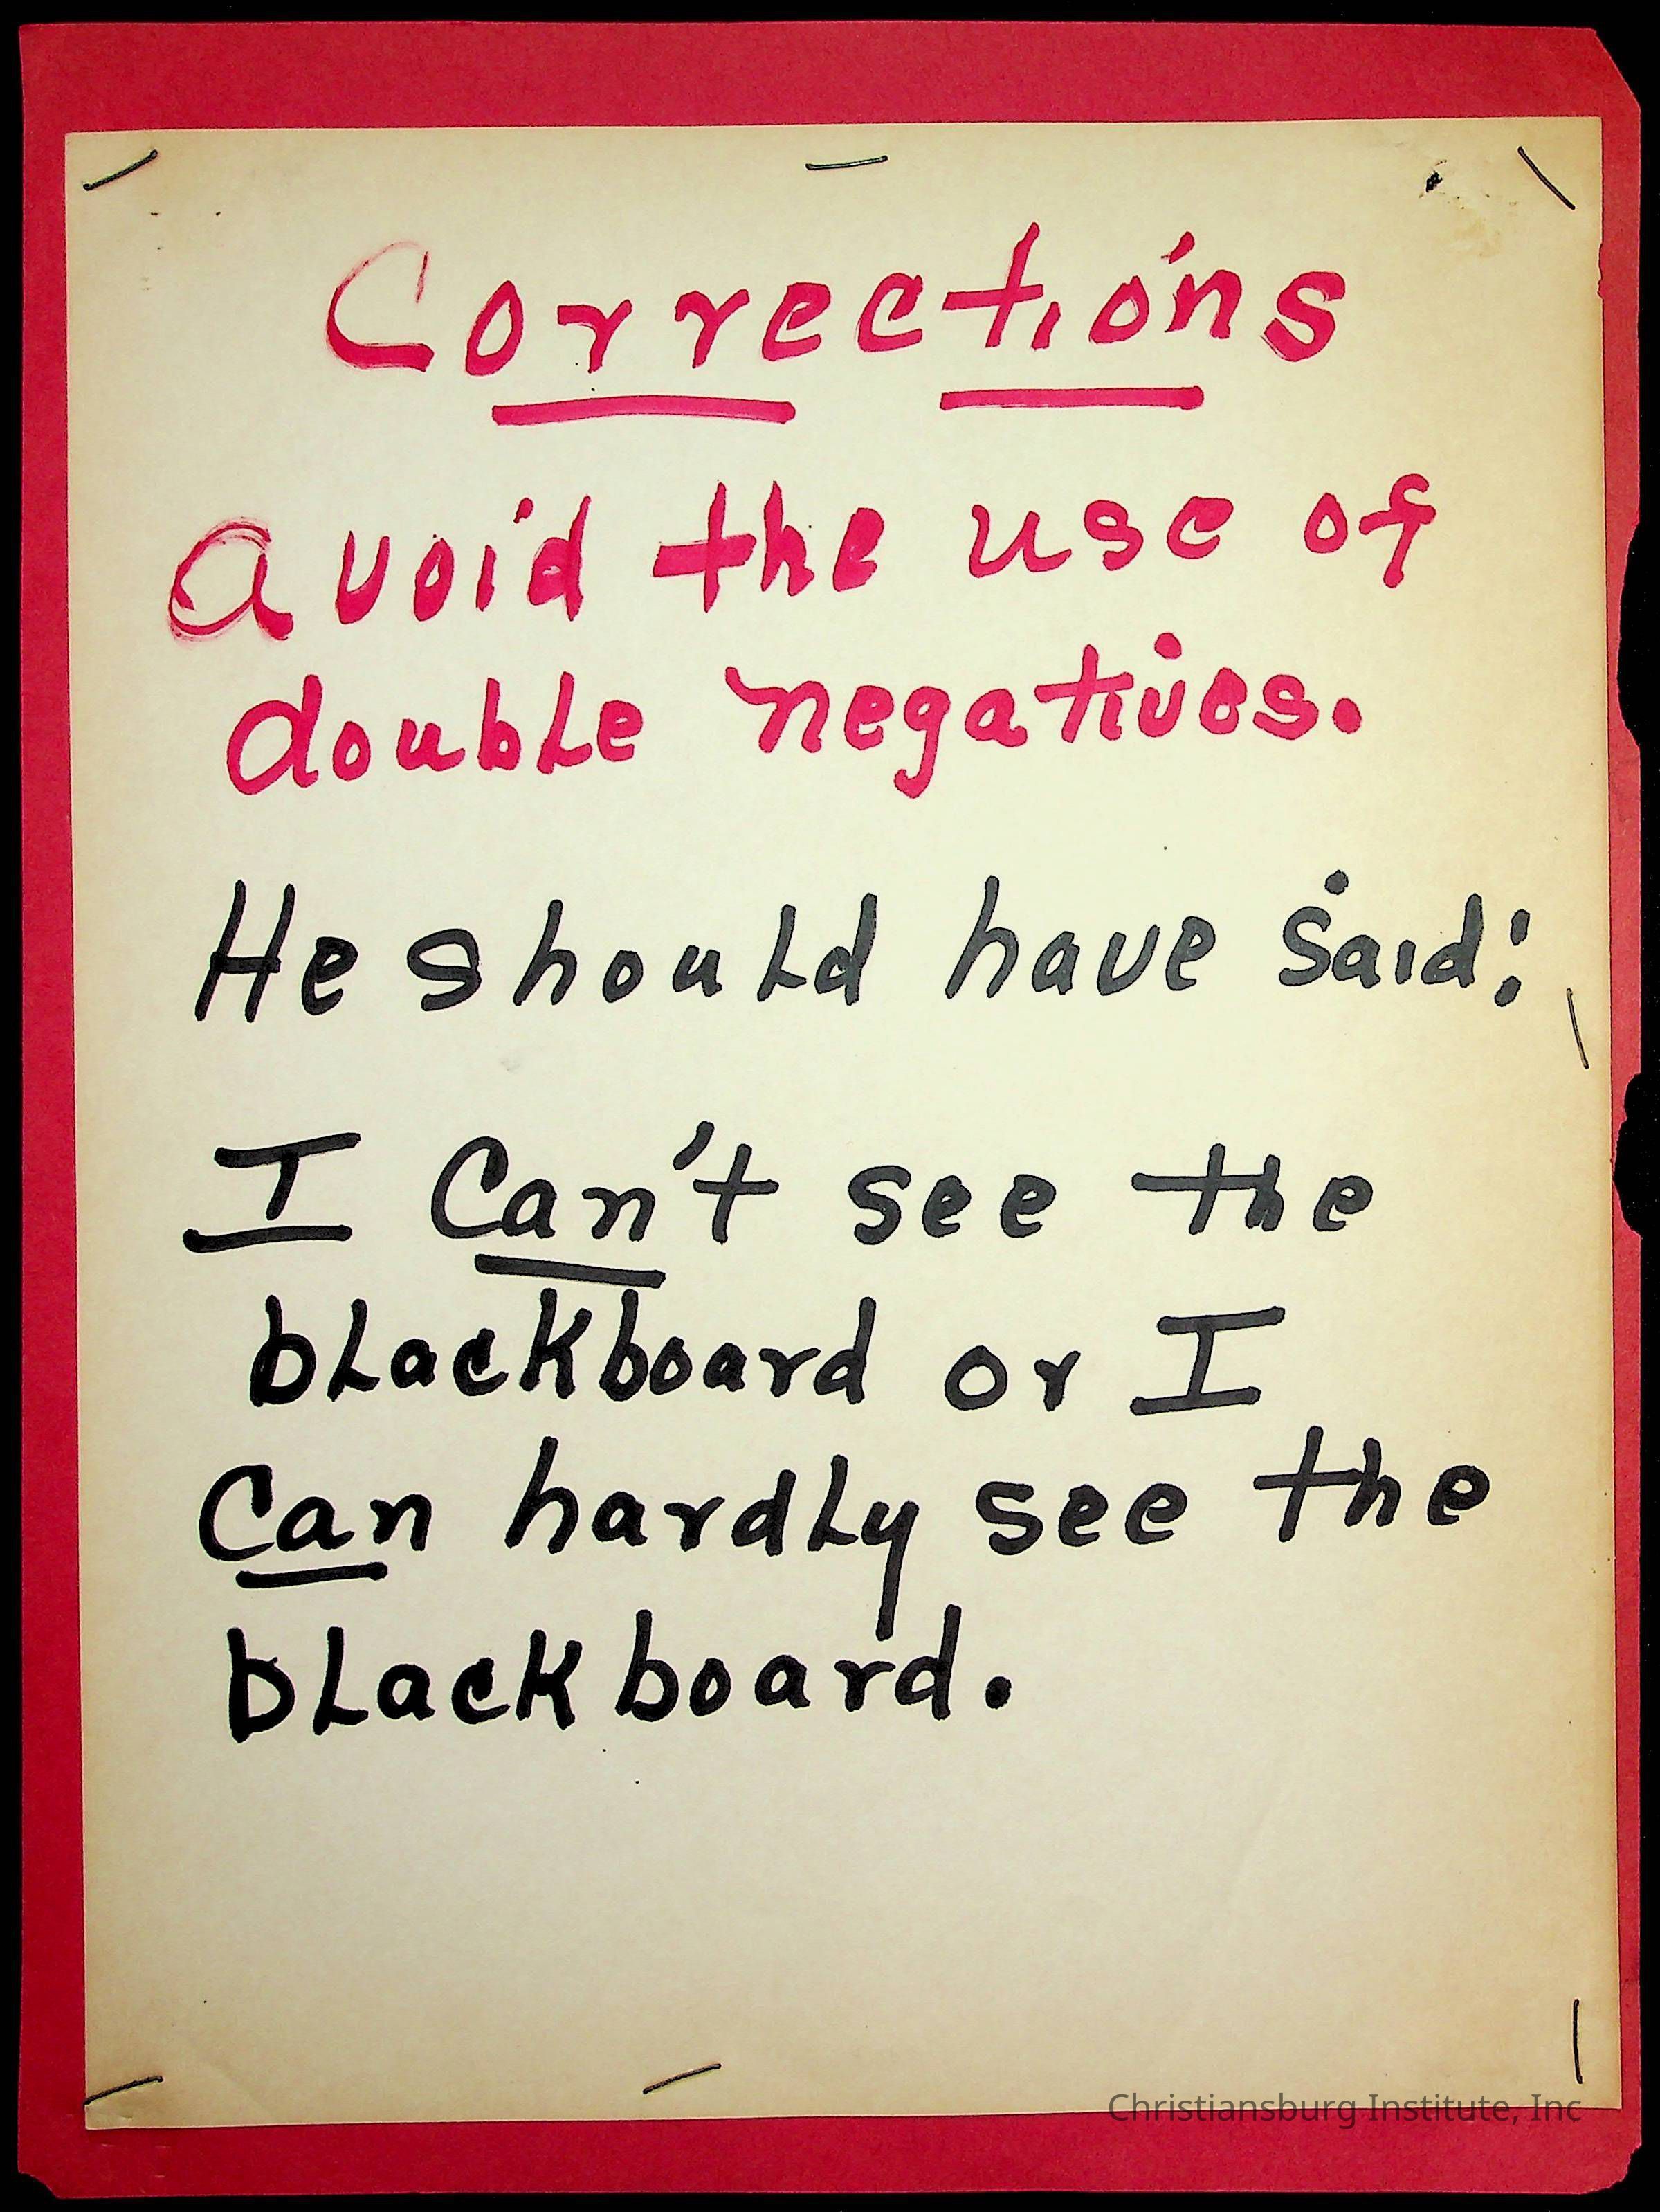 Corrections
Avoid the use of
double negatives.
He should have said:
I Can't see the
blackboard or I
Can hardly see the
blackboard.
Christiansburg Institute, Inc